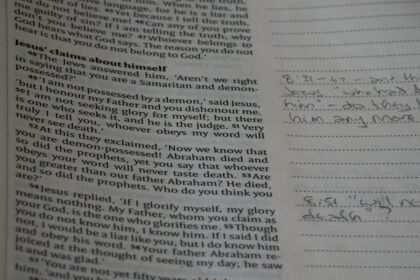 me of God? Because I tell the truth,
you do not believe me! ⁴⁶Can any of you prove
guilty of sin? If I am telling the truth, why
don't you believe me? ⁴⁷Whoever belongs to
God hears what God says. The reason you do not
hear is that you do not belong to God.'
Jesus' claims about himself
⁴⁸The Jews answered him, 'Aren't we right
in saying that you are a Samaritan and demon-
possessed?'
'I am not possessed by a demon,' said Jesus,
'but I honour my Father and you dishonour me.
I am not seeking glory for myself; but there
is one who seeks it, and he is the judge. ⁵¹Very
truly I tell you, whoever obeys my word will
never see death.'
⁵²At this they exclaimed, 'Now we know that
you are demon-possessed! Abraham died and
so did the prophets, yet you say that whoever
obeys your word will never taste death. ⁵³Are
you greater than our father Abraham? He died,
and so did the prophets. Who do you think you
are?'
⁵⁴Jesus replied, 'If I glorify myself, my glory
means nothing. My Father, whom you claim as
your God, is the one who glorifies me. ⁵⁵Though
you do not know him, I know him. If I said I did
not, I would be a liar like you, but I do know him
and obey his word. ⁵⁶Your father Abraham re-
joiced at the thought of seeing my day; he saw
it and was glad.'
'You are not yet fifty years old,'
him, 'and you
8:31-47 - 
Jesus who had
him" - do they
him any more
8:51 "will ne
death